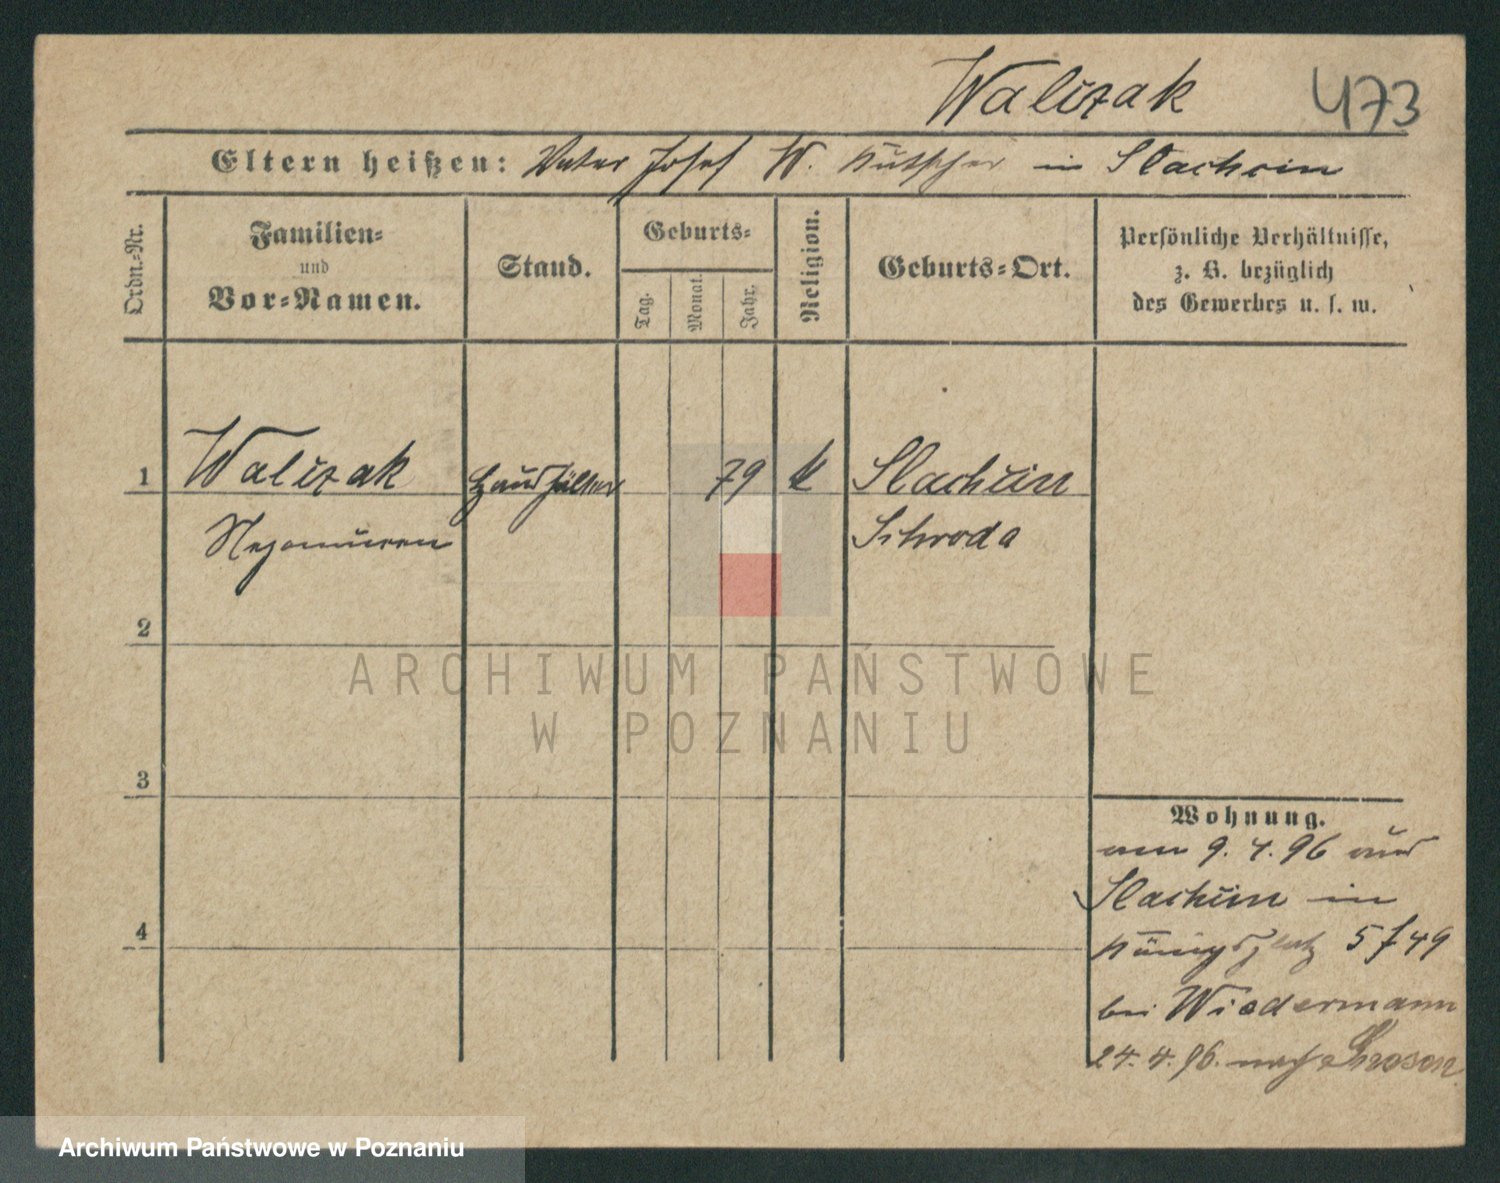 Waliczak 473
Eltern heißen: Vater Josef W. Kutscher in Slachcin
Ordn.-Nr.
Familien-
und
Vor-Namen.
Stand.
Geburts-
Tag.
Monat.
Jahr.
Religion.
Geburts-Ort.
Persönliche Verhältnisse,
z. B. bezüglich
des Gewerbes u. s. w.
1 79 k
Schroda
2
3
4
Wohnung.
am 9. 4. 96 aus
in
Königsplatz 5 49
bei Wiedermann
24. 4. 96. nach
ARCHIWUM PAŃSTWOWE
W POZNANIU
Archiwum Państwowe w Poznaniu